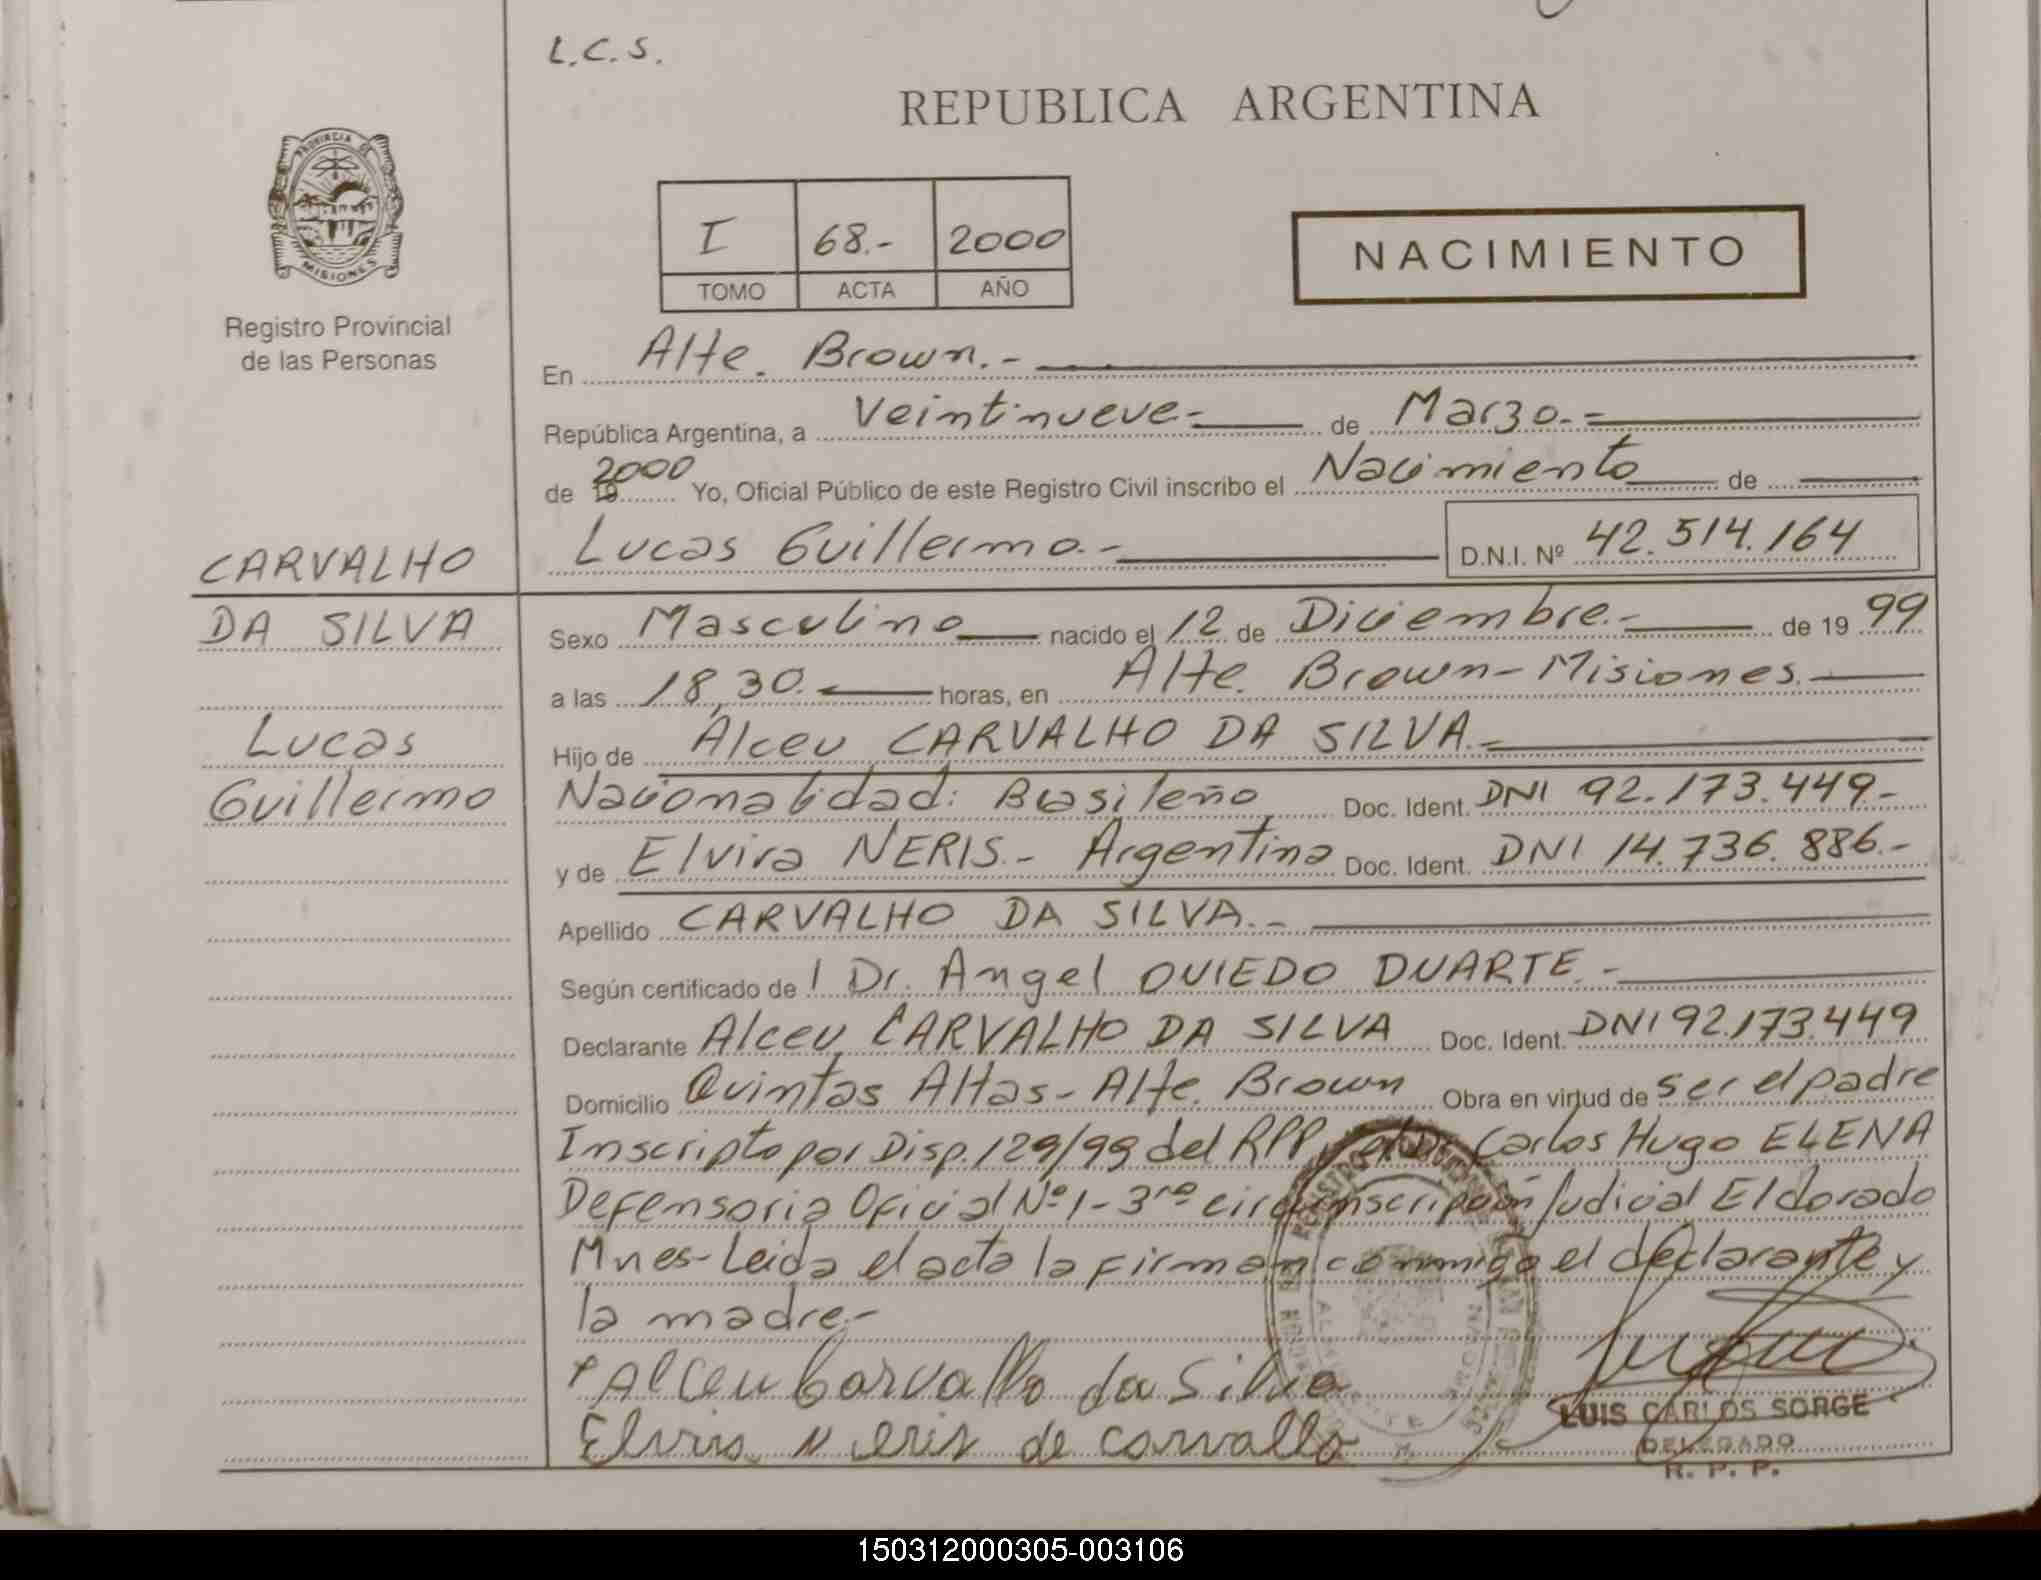 L.C.S.
REPUBLICA ARGENTINA
PROVINCIA DE
MISIONES
Registro Provincial
de las Personas
I 68.- 2000
TOMO ACTA AÑO
NACIMIENTO
En Alte. Brown.-
República Argentina, a Veintinueve.- de Marzo.-
de 19 2000 Yo, Oficial Público de este Registro Civil inscribo el Nacimiento de
Lucas Guillermo.- D.N.I. Nº 42.514.164
CARVALHO
DA SILVA
Lucas
Guillermo
Sexo Masculino nacido el 12 de Diciembre.- de 19 99
a las 18,30.- horas, en Alte. Brown-Misiones.
Hijo de Alceu CARVALHO DA SILVA.-
Nacionalidad: Brasileño Doc. Ident. DNI 92.173.449.-
y de Elvira NERIS.- Argentina Doc. Ident. DNI 14.736.886.-
Apellido CARVALHO DA SILVA.-
Según certificado de l Dr. Angel OVIEDO DUARTE.-
Declarante Alceu CARVALHO DA SILVA Doc. Ident. DNI 92.173.449
Domicilio Quintas Altas-Alte. Brown Obra en virtud de ser el padre
Inscripto por Disp. 129/99 del RPP y el Dr. Carlos Hugo ELENA
Defensoria Oficial Nº 1-3ra circunscripción Judicial Eldorado
Mnes-Leida el acta la firman conmigo el declarante y
la madre.-
Alceu Carvalho da Silva
Elvira Neris de Carvallo
LUIS CARLOS SORGE
DELEGADO
R. P. P.
150312000305-003106